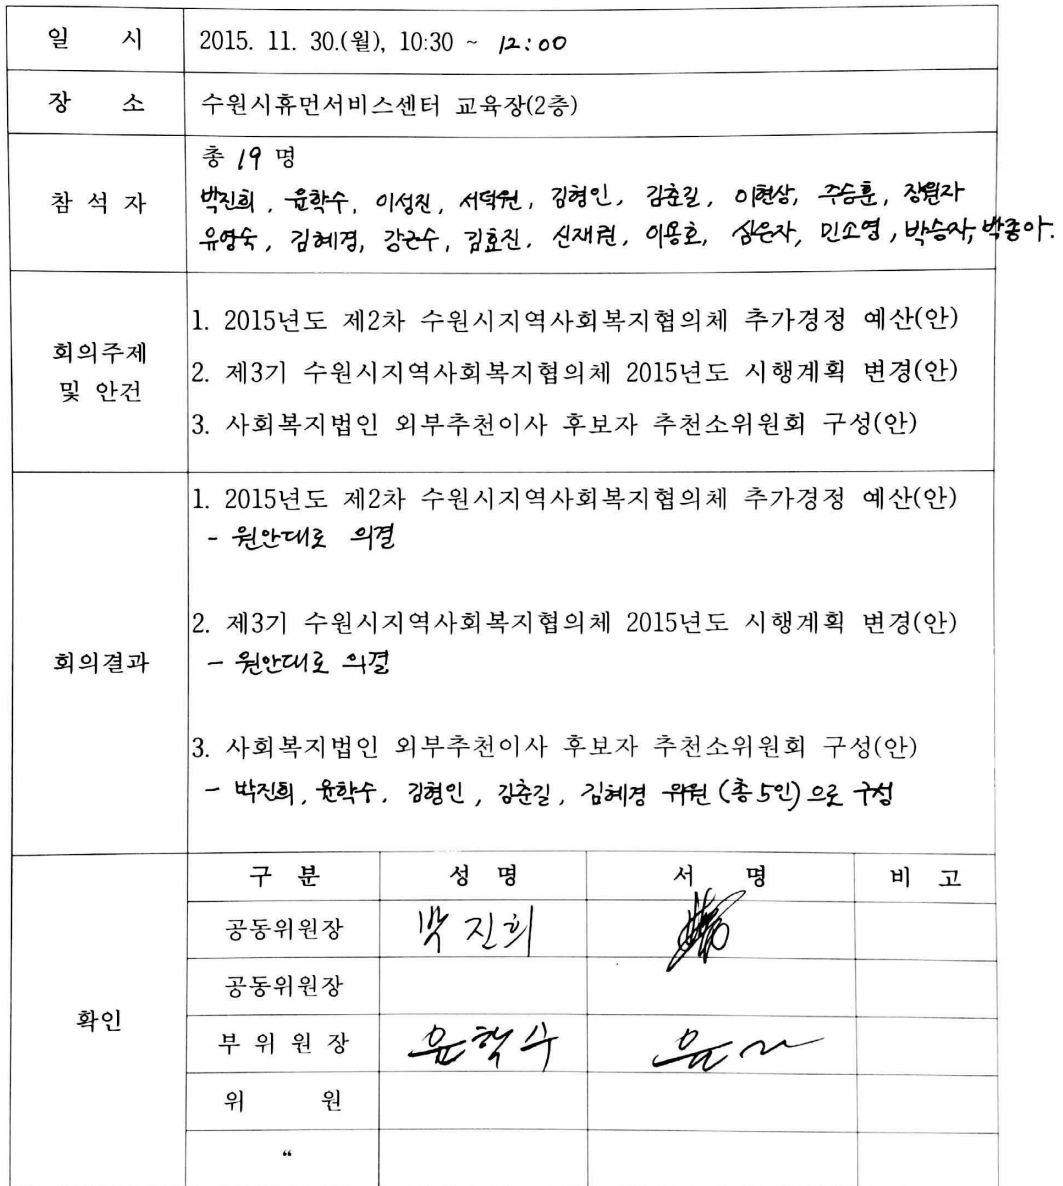 일 시 2015. 11. 30.(월), 10:30 ~ 12:00
장 소 수원시휴먼서비스센터 교육장(2층)
참 석 자
총 19 명
박진희, 윤학수, 이성진, 서덕원, 김형인, 김춘길, 이현상, 주승훈, 장원자
유영숙, 김혜경, 강근수, 김효진, 신재원, 이용호, 심은자, 민소영, 박승자, 박종아.
회의주제
및 안건
1. 2015년도 제2차 수원시지역사회복지협의체 추가경정 예산(안)
2. 제3기 수원시지역사회복지협의체 2015년도 시행계획 변경(안)
3. 사회복지법인 외부추천이사 후보자 추천소위원회 구성(안)
회의결과
1. 2015년도 제2차 수원시지역사회복지협의체 추가경정 예산(안)
- 원안대로 의결
2. 제3기 수원시지역사회복지협의체 2015년도 시행계획 변경(안)
- 원안대로 의결
3. 사회복지법인 외부추천이사 후보자 추천소위원회 구성(안)
- 박진희, 윤학수, 김형인, 김춘길, 김혜경 위원 (총 5인)으로 구성
확인
구 분 성 명 서 명 비 고
공동위원장 박진희
공동위원장
부 위 원 장 윤학수
위 원
“